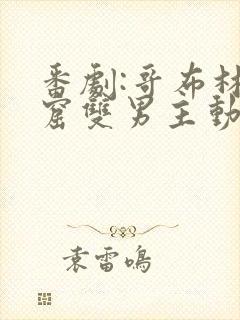 番劇:哥布林
窟雙男主動
袁雷鳴